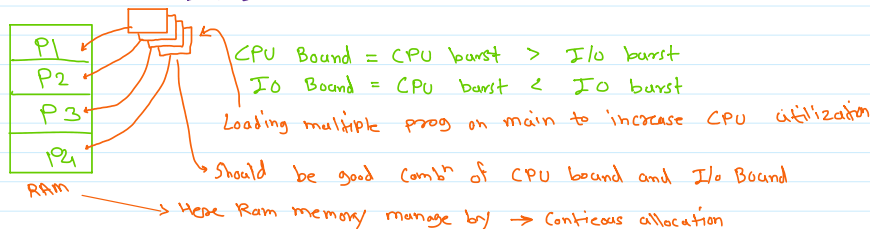 P1
P2
P3
P4
RAM
CPU Bound = CPU burst > I/o burst
IO Bound = CPU burst < IO burst
Loading multiple prog on main to increase CPU utilization
Should be good Combn of CPU bound and I/o Bound
Here Ram memory manage by → Conticous allocation